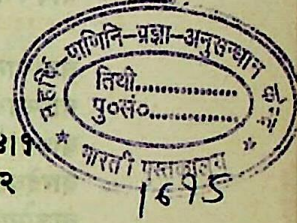 महर्षि-पाणिनि-प्रज्ञा-अनुसन्धान केन्द्र
तिथी..................
पु०सं०..................
* भारती पुस्तकालय *
1695
२